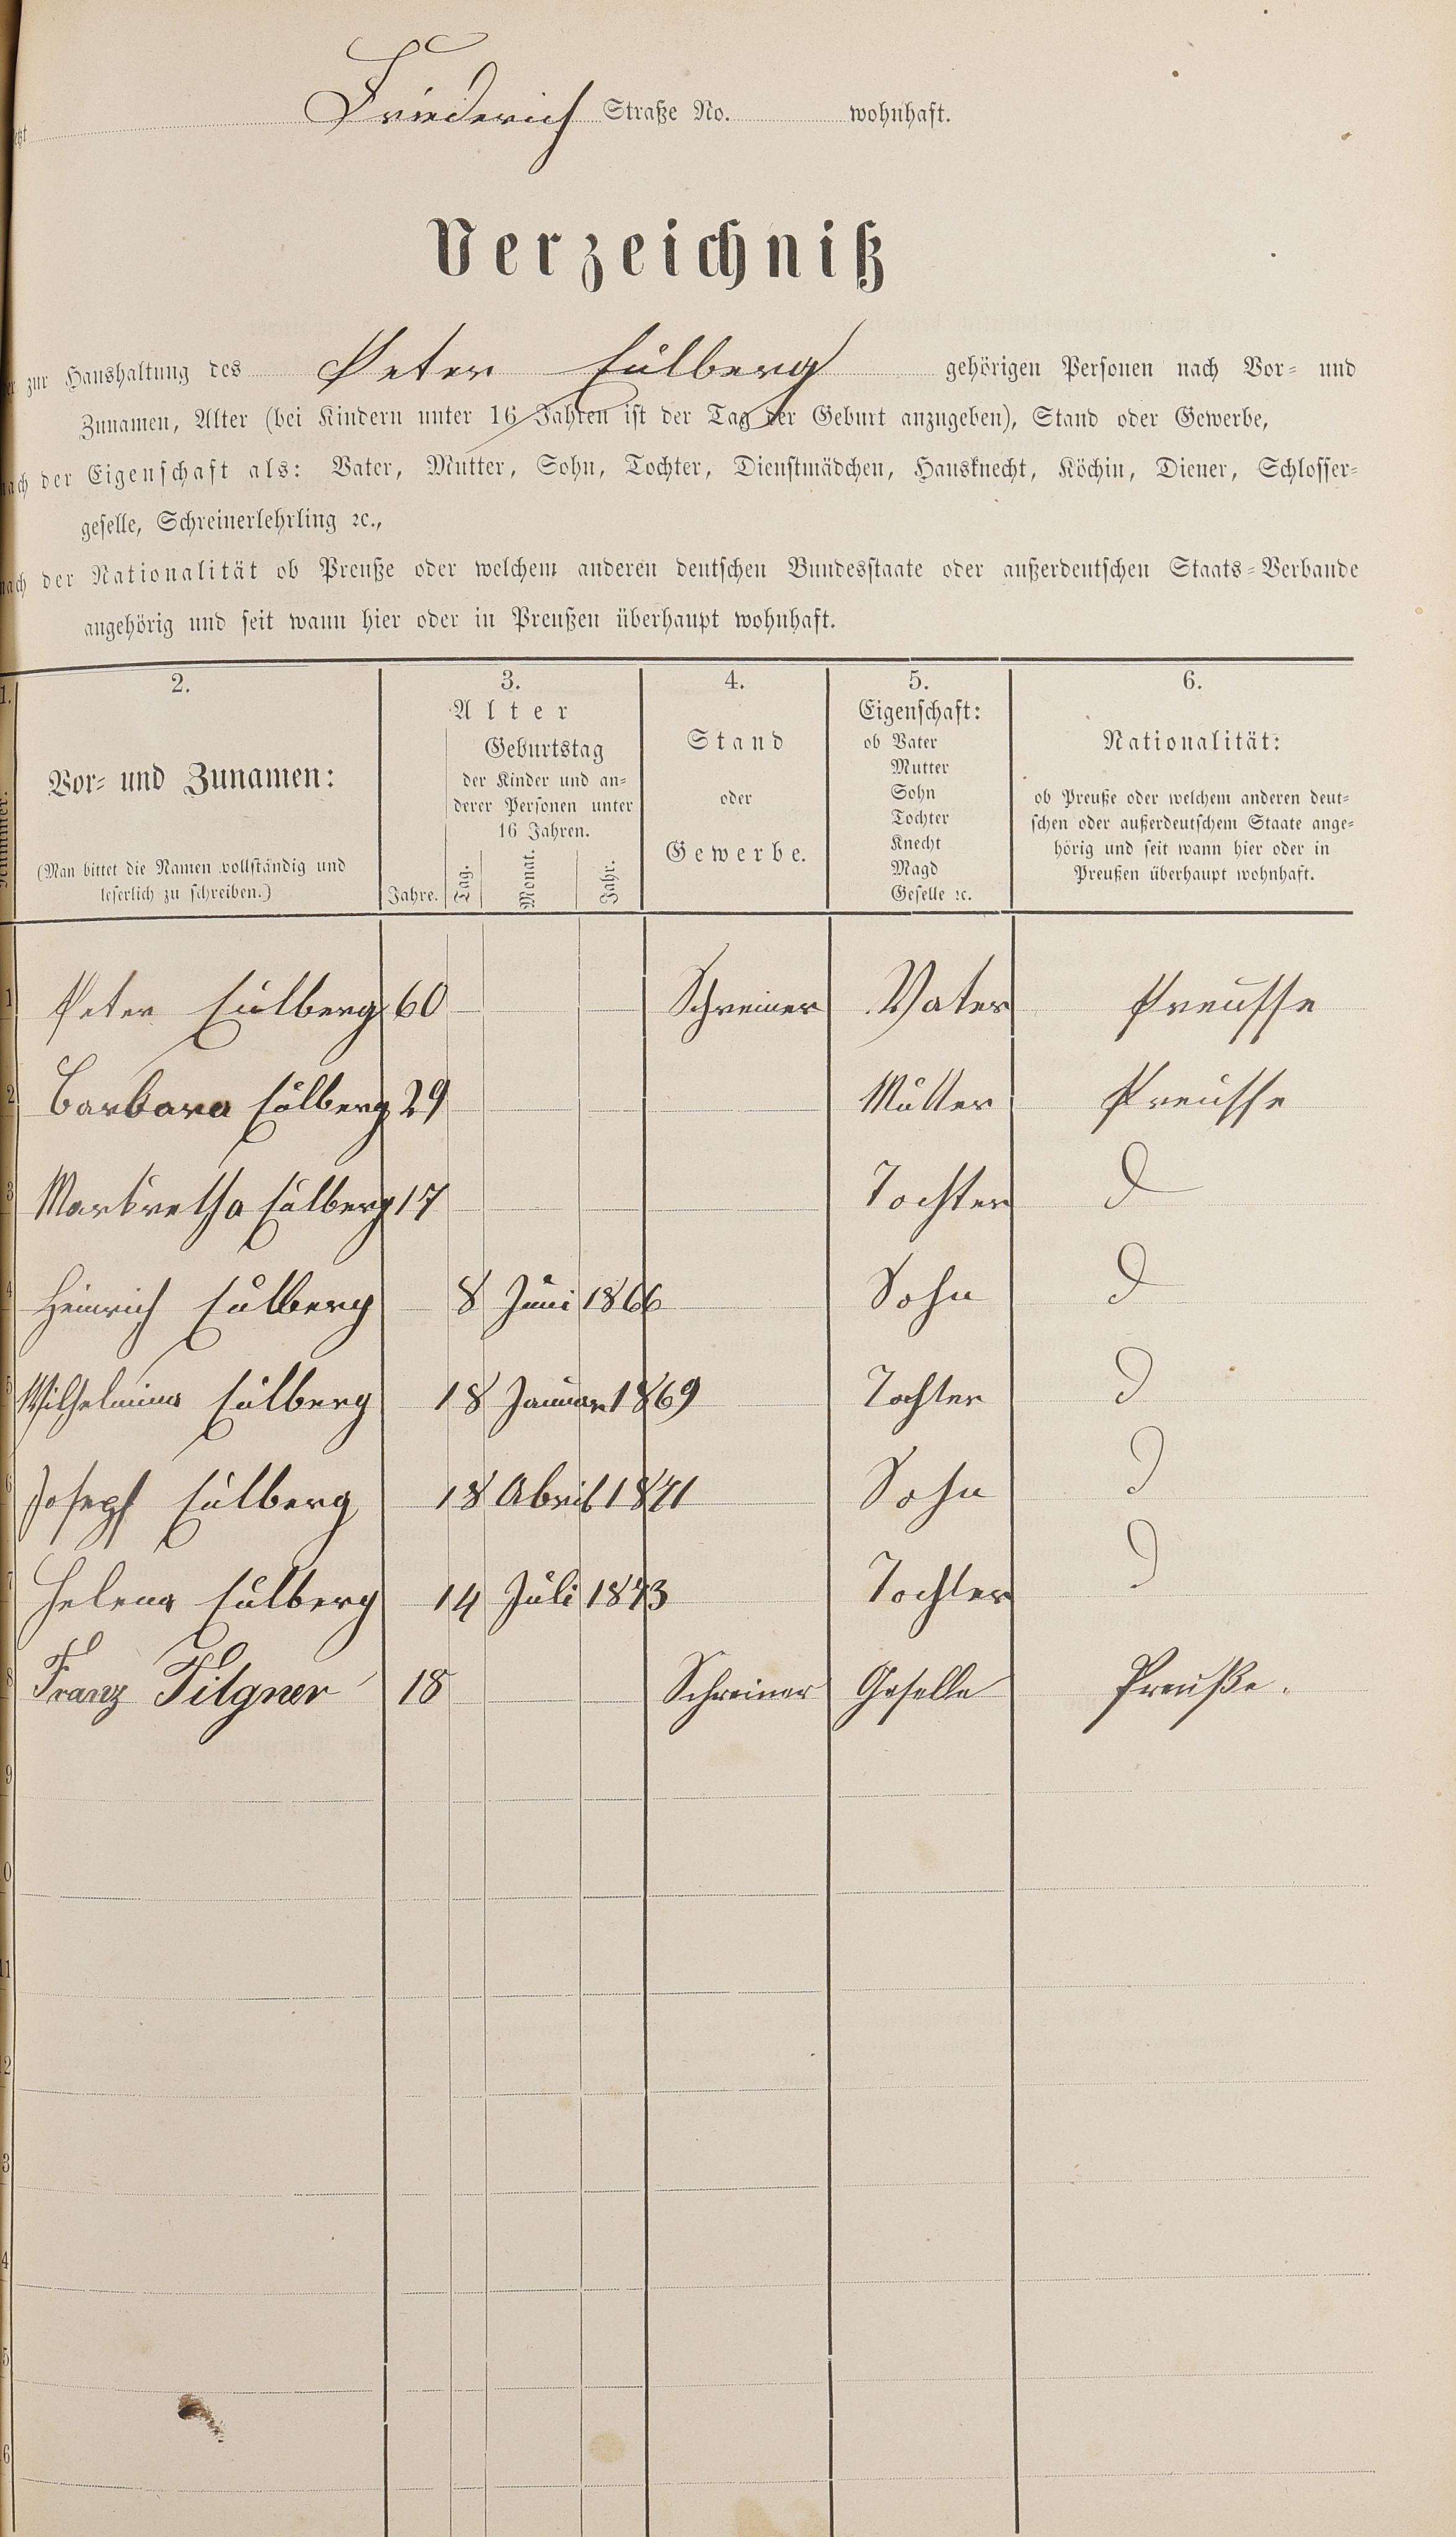 Friederich Straße No. wohnhaft.
Verzeichniß
zur Haushaltung des Peter Eulberg gehörigen Personen nach Vor- und
Zunamen, Alter (bei Kindern unter 16 Jahren ist der Tag der Geburt anzugeben), Stand oder Gewerbe,
nach der Eigenschaft als: Vater, Mutter, Sohn, Tochter, Dienstmädchen, Hausknecht, Köchin, Diener, Schlosser-
geselle, Schreinerlehrling ꝛc.,
nach der Nationalität ob Preuße oder welchem anderen deutschen Bundesstaate oder außerdeutschen Staats-Verbande
angehörig und seit wann hier oder in Preußen überhaupt wohnhaft.
1. 2. 3. 4. 5. 6.
Nummer.
Vor- und Zunamen:
(Man bittet die Namen vollständig und
leserlich zu schreiben.)
Alter
Jahre.
Geburtstag
der Kinder und an-
derer Personen unter
16 Jahren.
Tag. Monat. Jahr.
Stand
oder
Gewerbe.
Eigenschaft:
ob Vater
Mutter
Sohn
Tochter
Knecht
Magd
Geselle ꝛc.
Nationalität:
ob Preuße oder welchem anderen deut-
schen oder außerdeutschem Staate ange-
hörig und seit wann hier oder in
Preußen überhaupt wohnhaft.
1 Peter Eulberg 60 Schreiner Vater Preusse
2 Barbara Eulberg 29 Mutter Preusse
3 Markretha Eulberg 17 Tochter d
4 Heinrich Eulberg 8 Juni 1866 Sohn d
5 Wilhelmina Eulberg 18 Januar 1869 Tochter d
6 Joseph Eulberg 18 Abril 1871 Sohn d
7 Helena Eulberg 14 Juli 1873 Tochter d
8 Franz Tilgner 18 Schreiner Geselle Preuße.
9
0
11
2
3
4
5
6